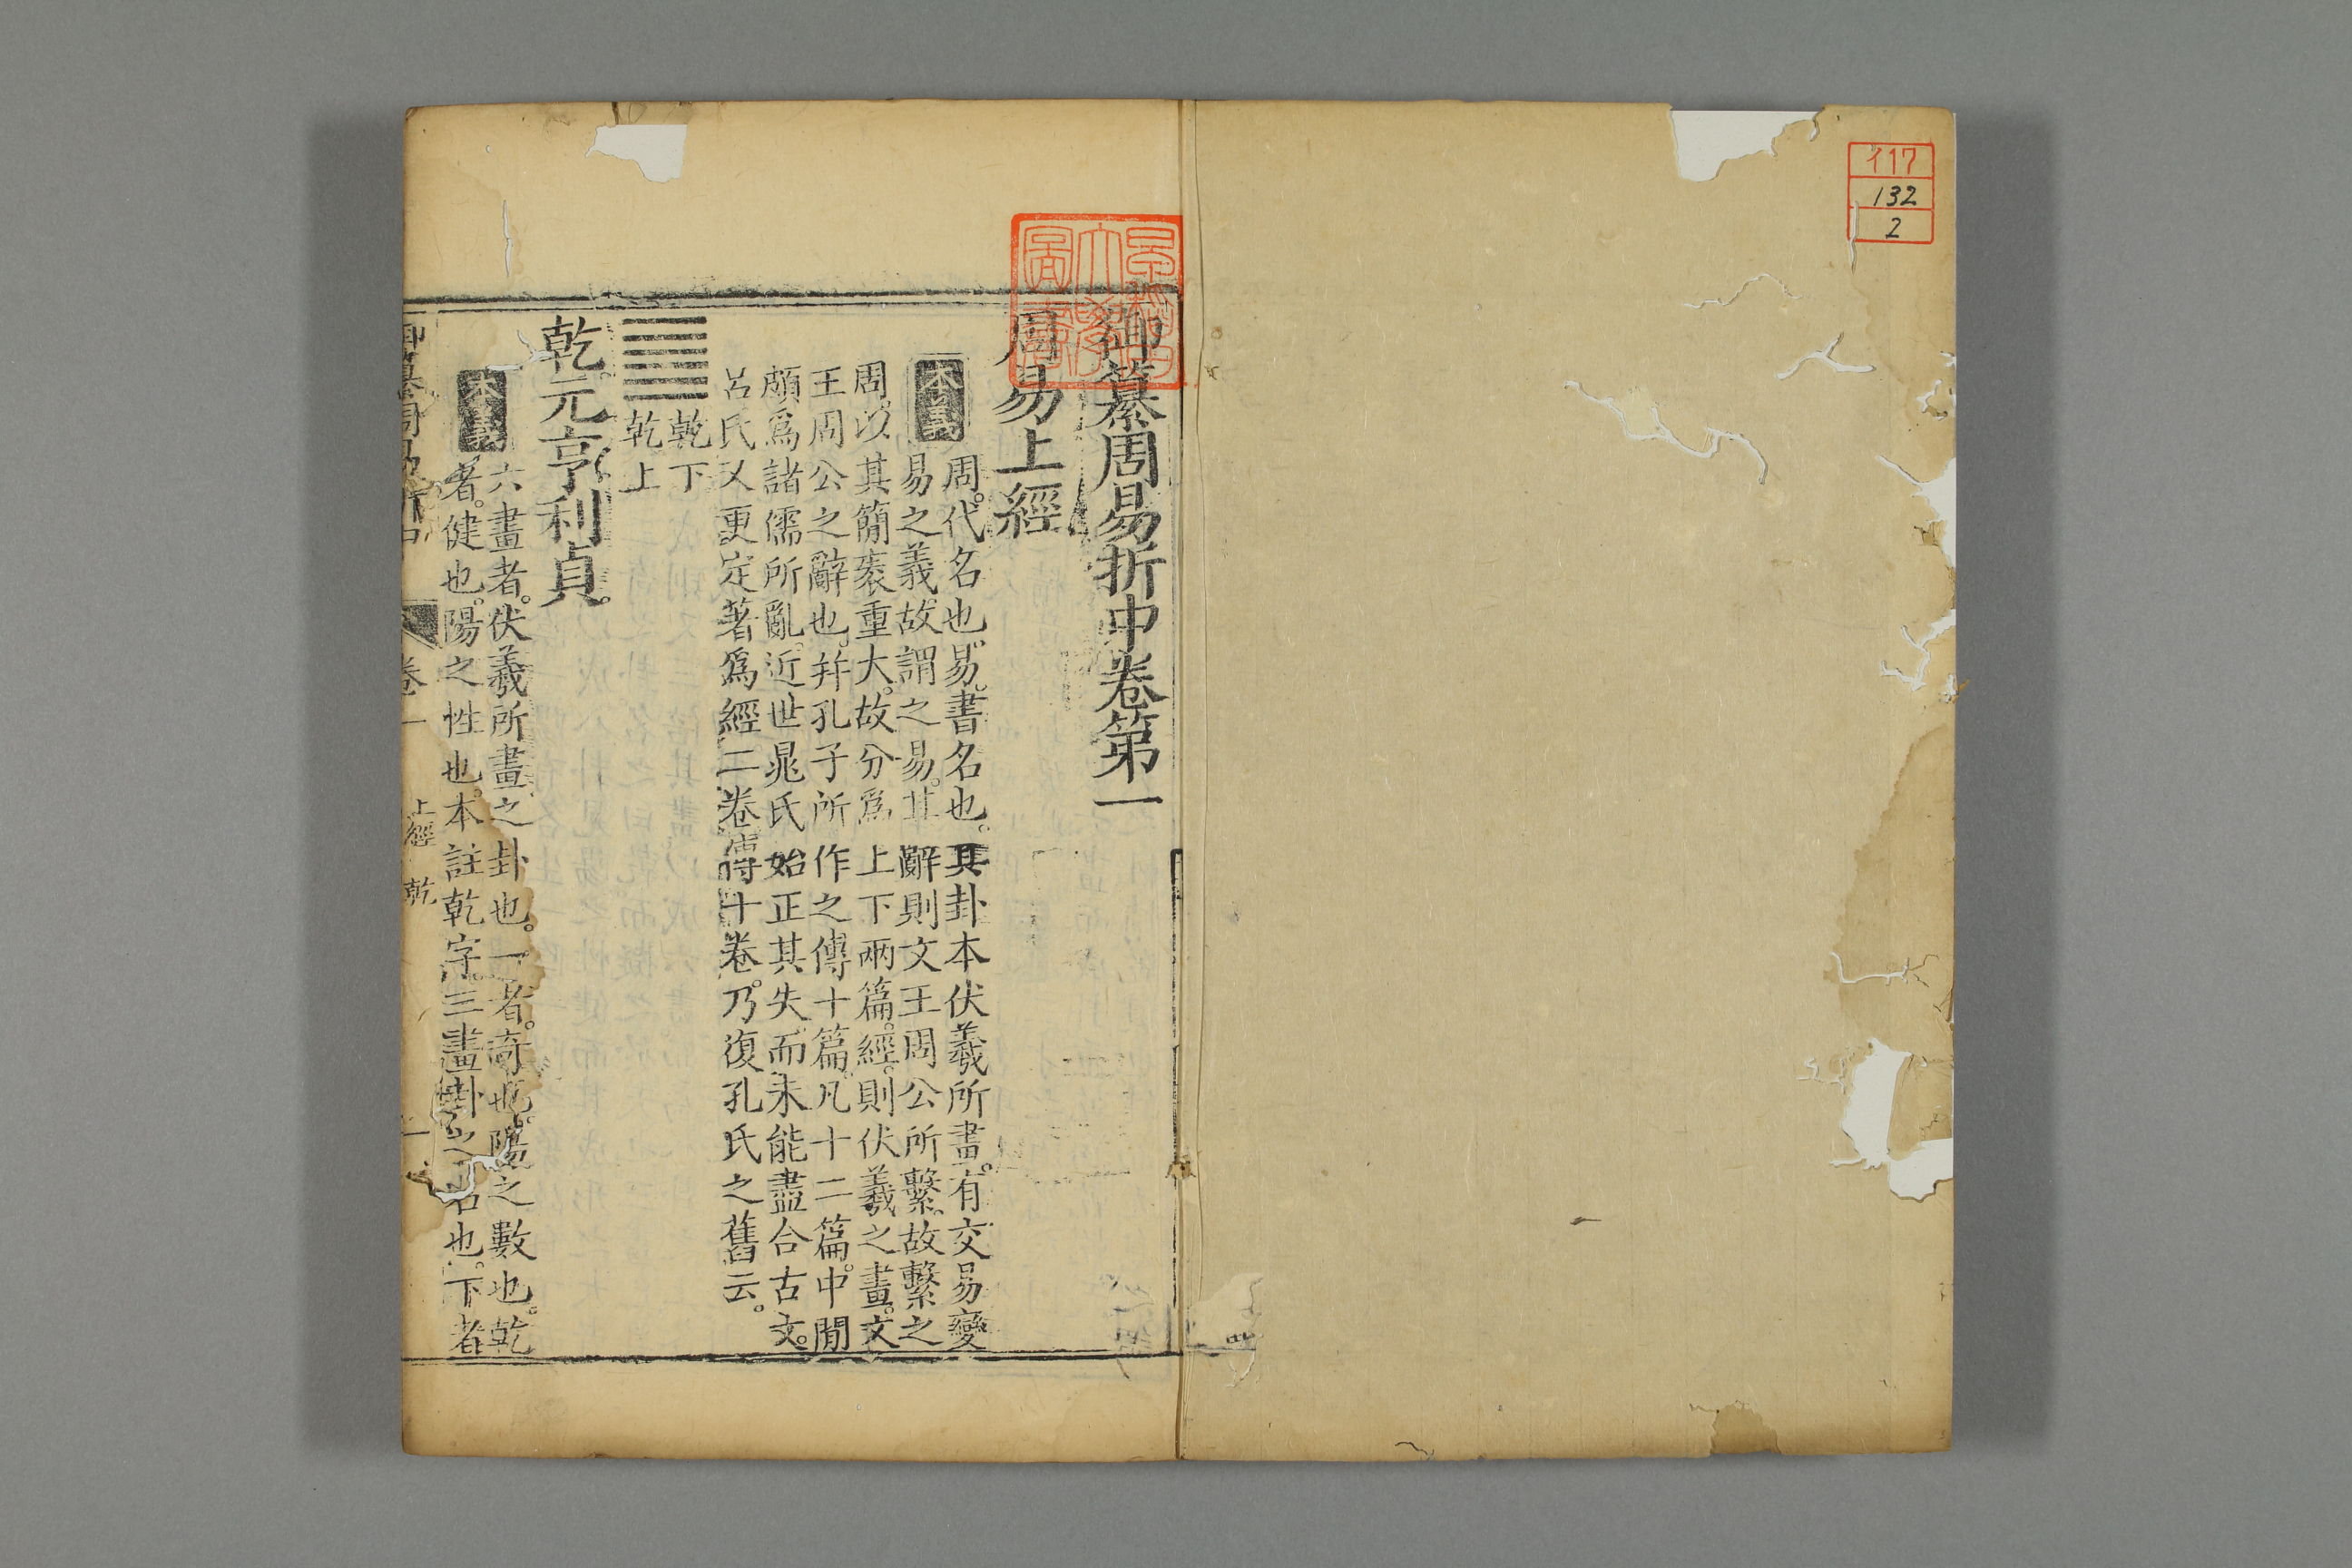 イ17
132
2
御纂周易折中卷第一
周易上經
本義
周。代名也。易。書名也。其卦本伏羲所畫。有交易變
易之義。故謂之易。其辭則文王周公所繫。故繫之
周。以其簡袠重大。故分爲上下兩篇。經。則伏羲之畫。文
王周公之辭也。幷孔子所作之傳十篇。凡十二篇。中閒
頗爲諸儒所亂。近世晁氏始正其失。而未能盡合古文。
呂氏又更定著爲經二卷傳十卷。乃復孔氏之舊云。
乾下
乾上
乾。元亨利貞。
本義
六畫者。伏羲所畫之卦也。一者。奇也。陽之數也。乾
者。健也。陽之性也。本註乾字。三畫卦之名也。下者
御纂周易折中
卷一
上經 乾
一